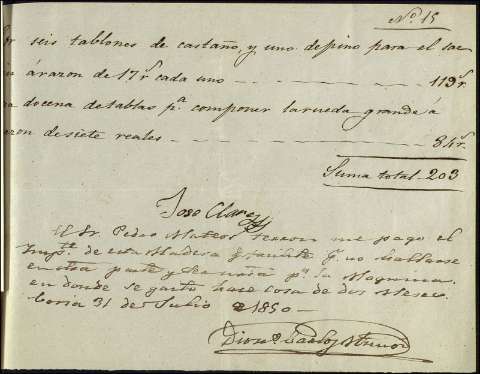 Nº 15
seis tablones de castaño, y uno de pino para el sae
á razon de 17 r. cada uno — — — — — 119 r.
docena de tablas pª componer la rueda grande á
azon de siete reales — — — — — 84 r.
Suma total 203
Jose Claro
El Sr. Pedro Mateos me pago el
de esta Madera q. no hallarse
en otra parte y pª su Maquina
en donde se gasto hace cosa de dos Meses
Coria 31 de Julio 1850 —